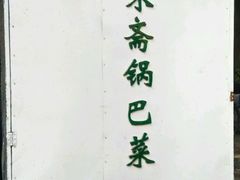 斋锅巴菜